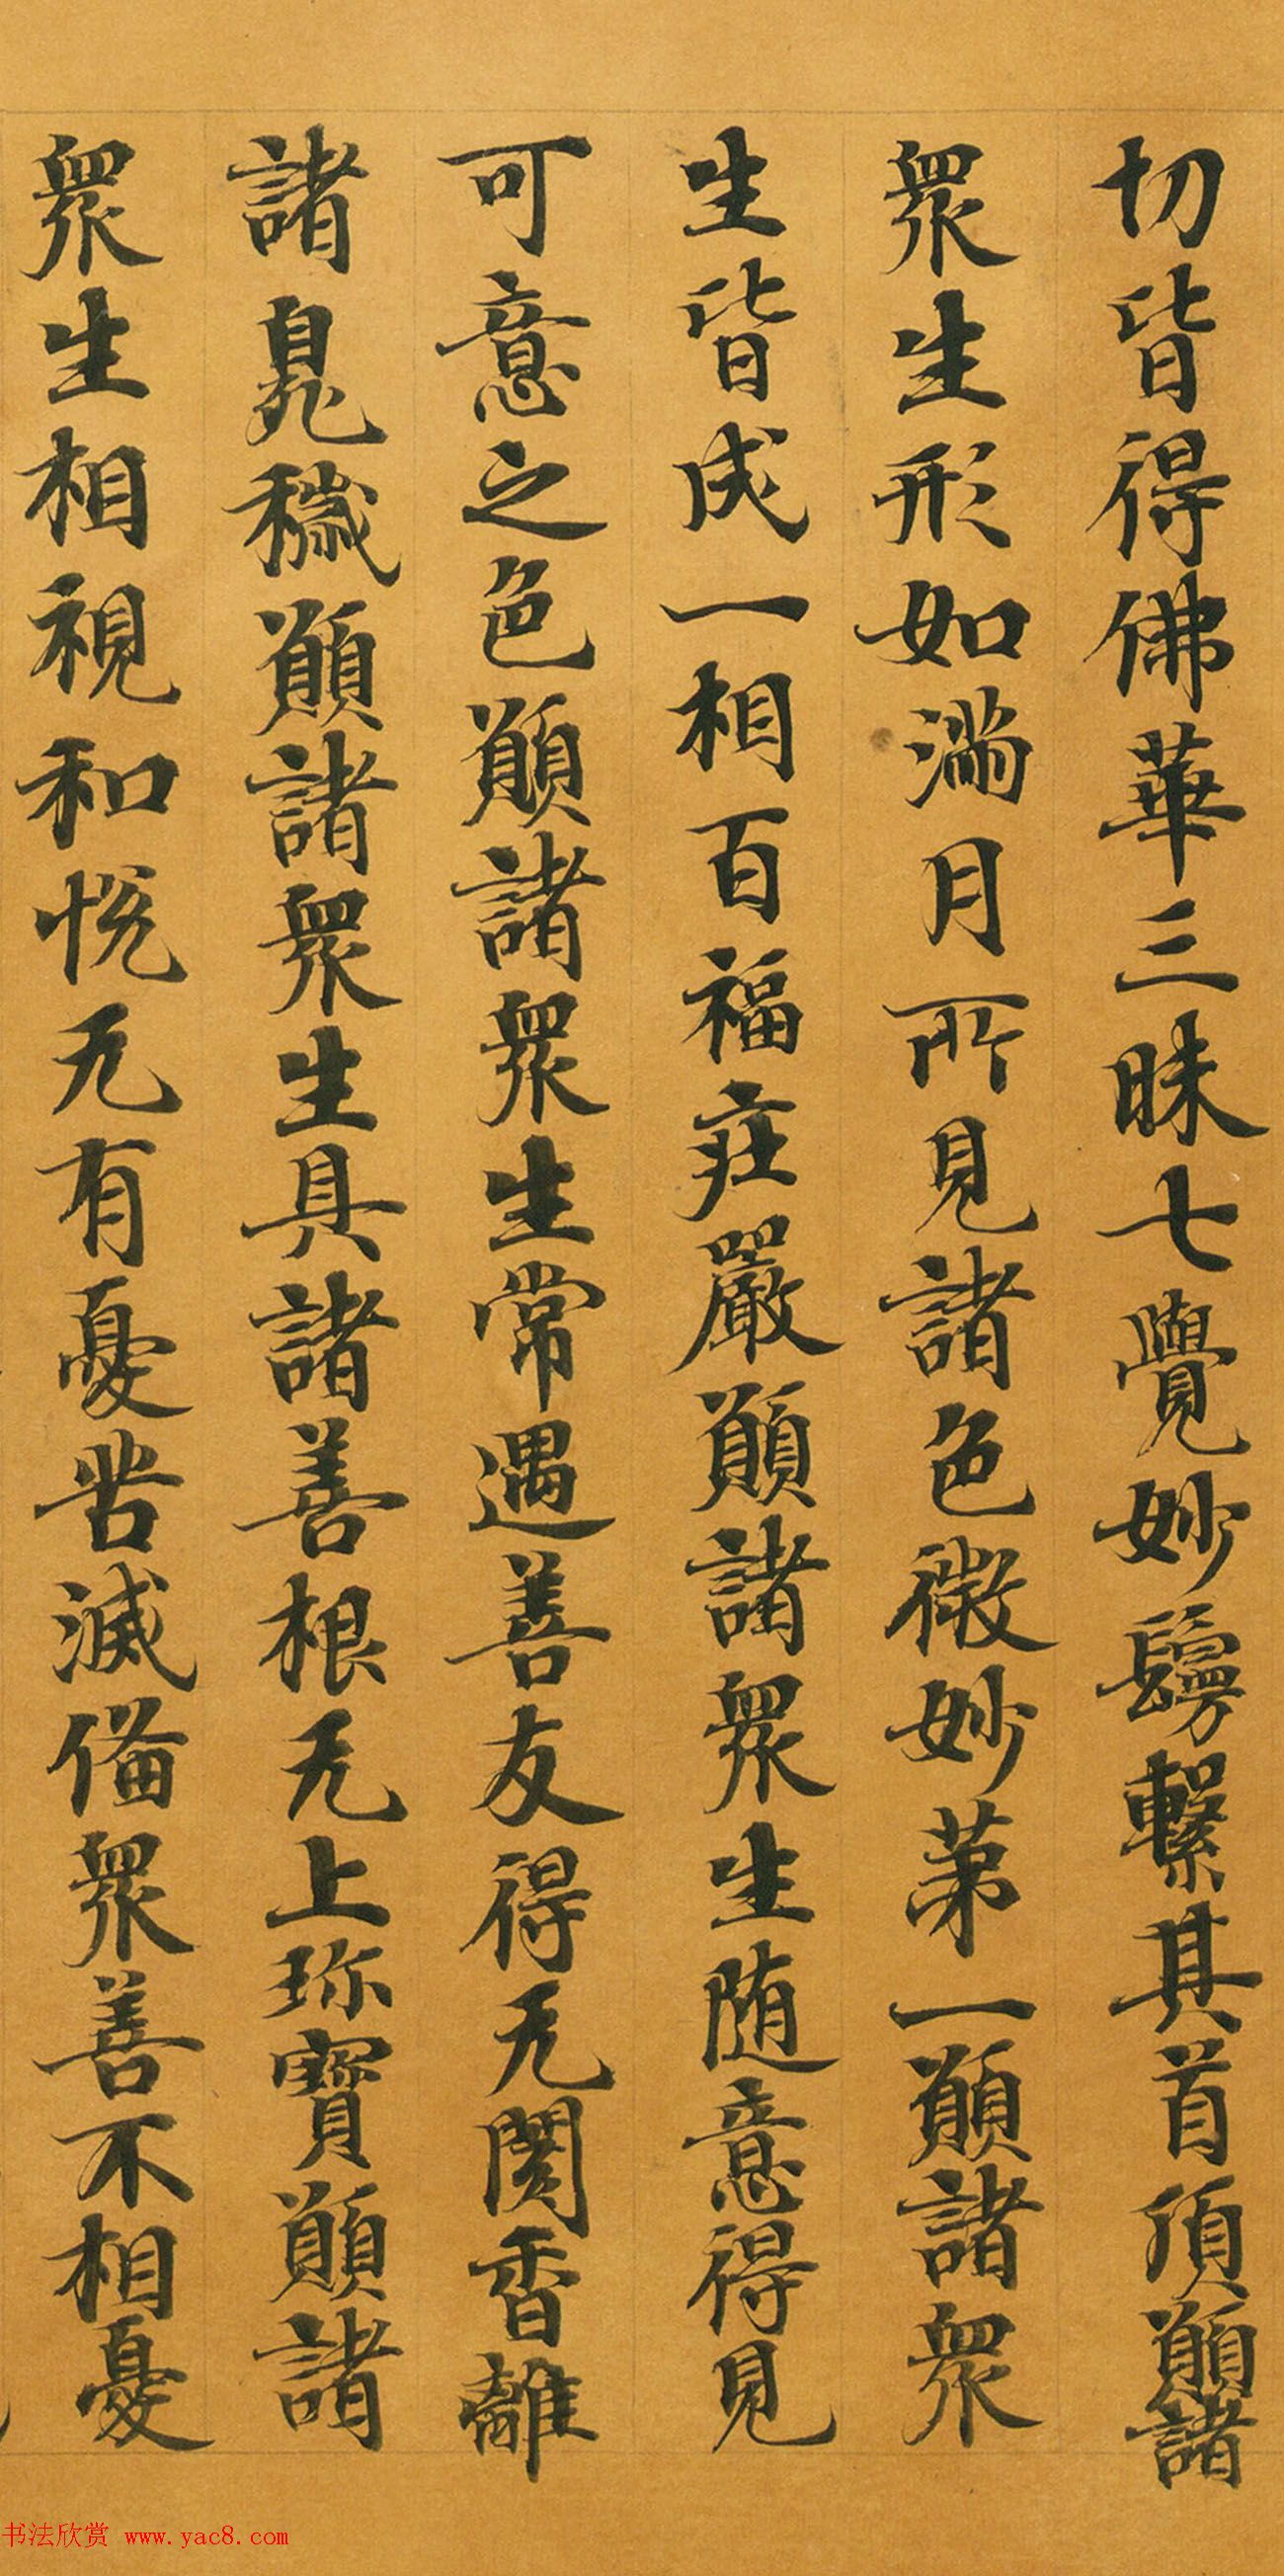 切皆得佛華三昧七覺妙鬘繫其首頂願諸
眾生形如滿月所見諸色微妙第一願諸眾
生皆成一相百福莊嚴願諸眾生隨意得見
可意之色願諸眾生常遇善友得无閡香離
諸臭穢願諸眾生具諸善根无上珎寶願諸
眾生相視和悅无有憂苦滅俻眾善不相憂
书法欣赏 www.yac8.com